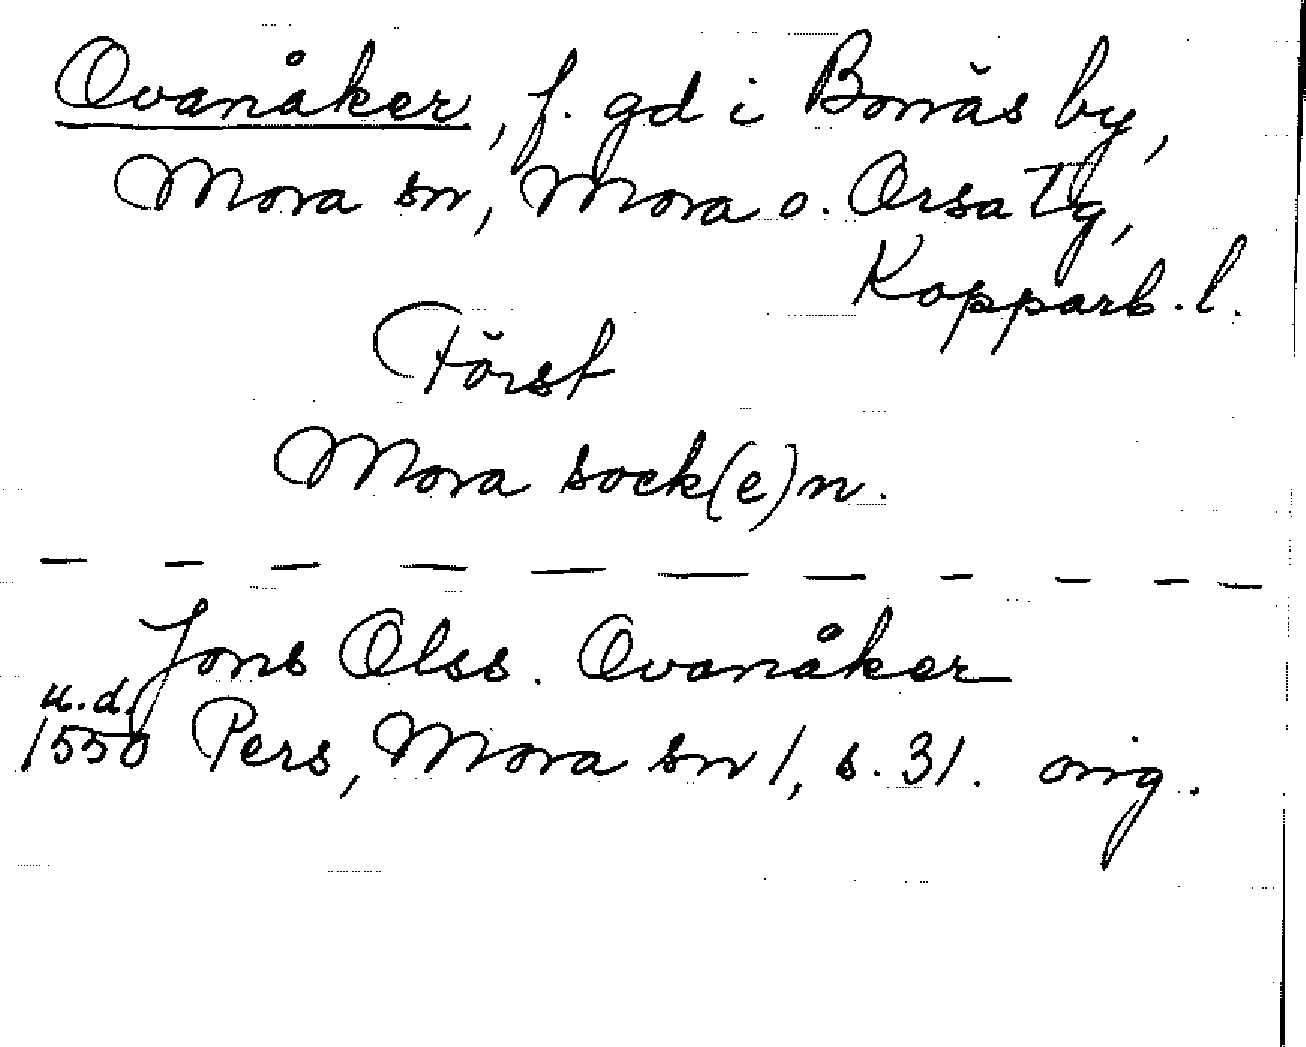 Ovanåker, f. gd i Bonäs by,
Mora sn, Mora o. Orsa Tg,
Kopparb. l.
Först
Mora sock(e)n.
Jons Olss. Ovanåker
u.d.
1550 Pers, Mora sn 1, s. 31. orig.